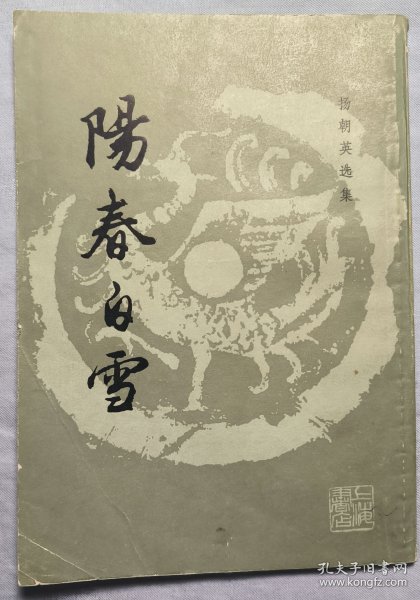 陽春白雪
扬朝英选集
上海書店
孔夫子旧书网
www.kongfz.com